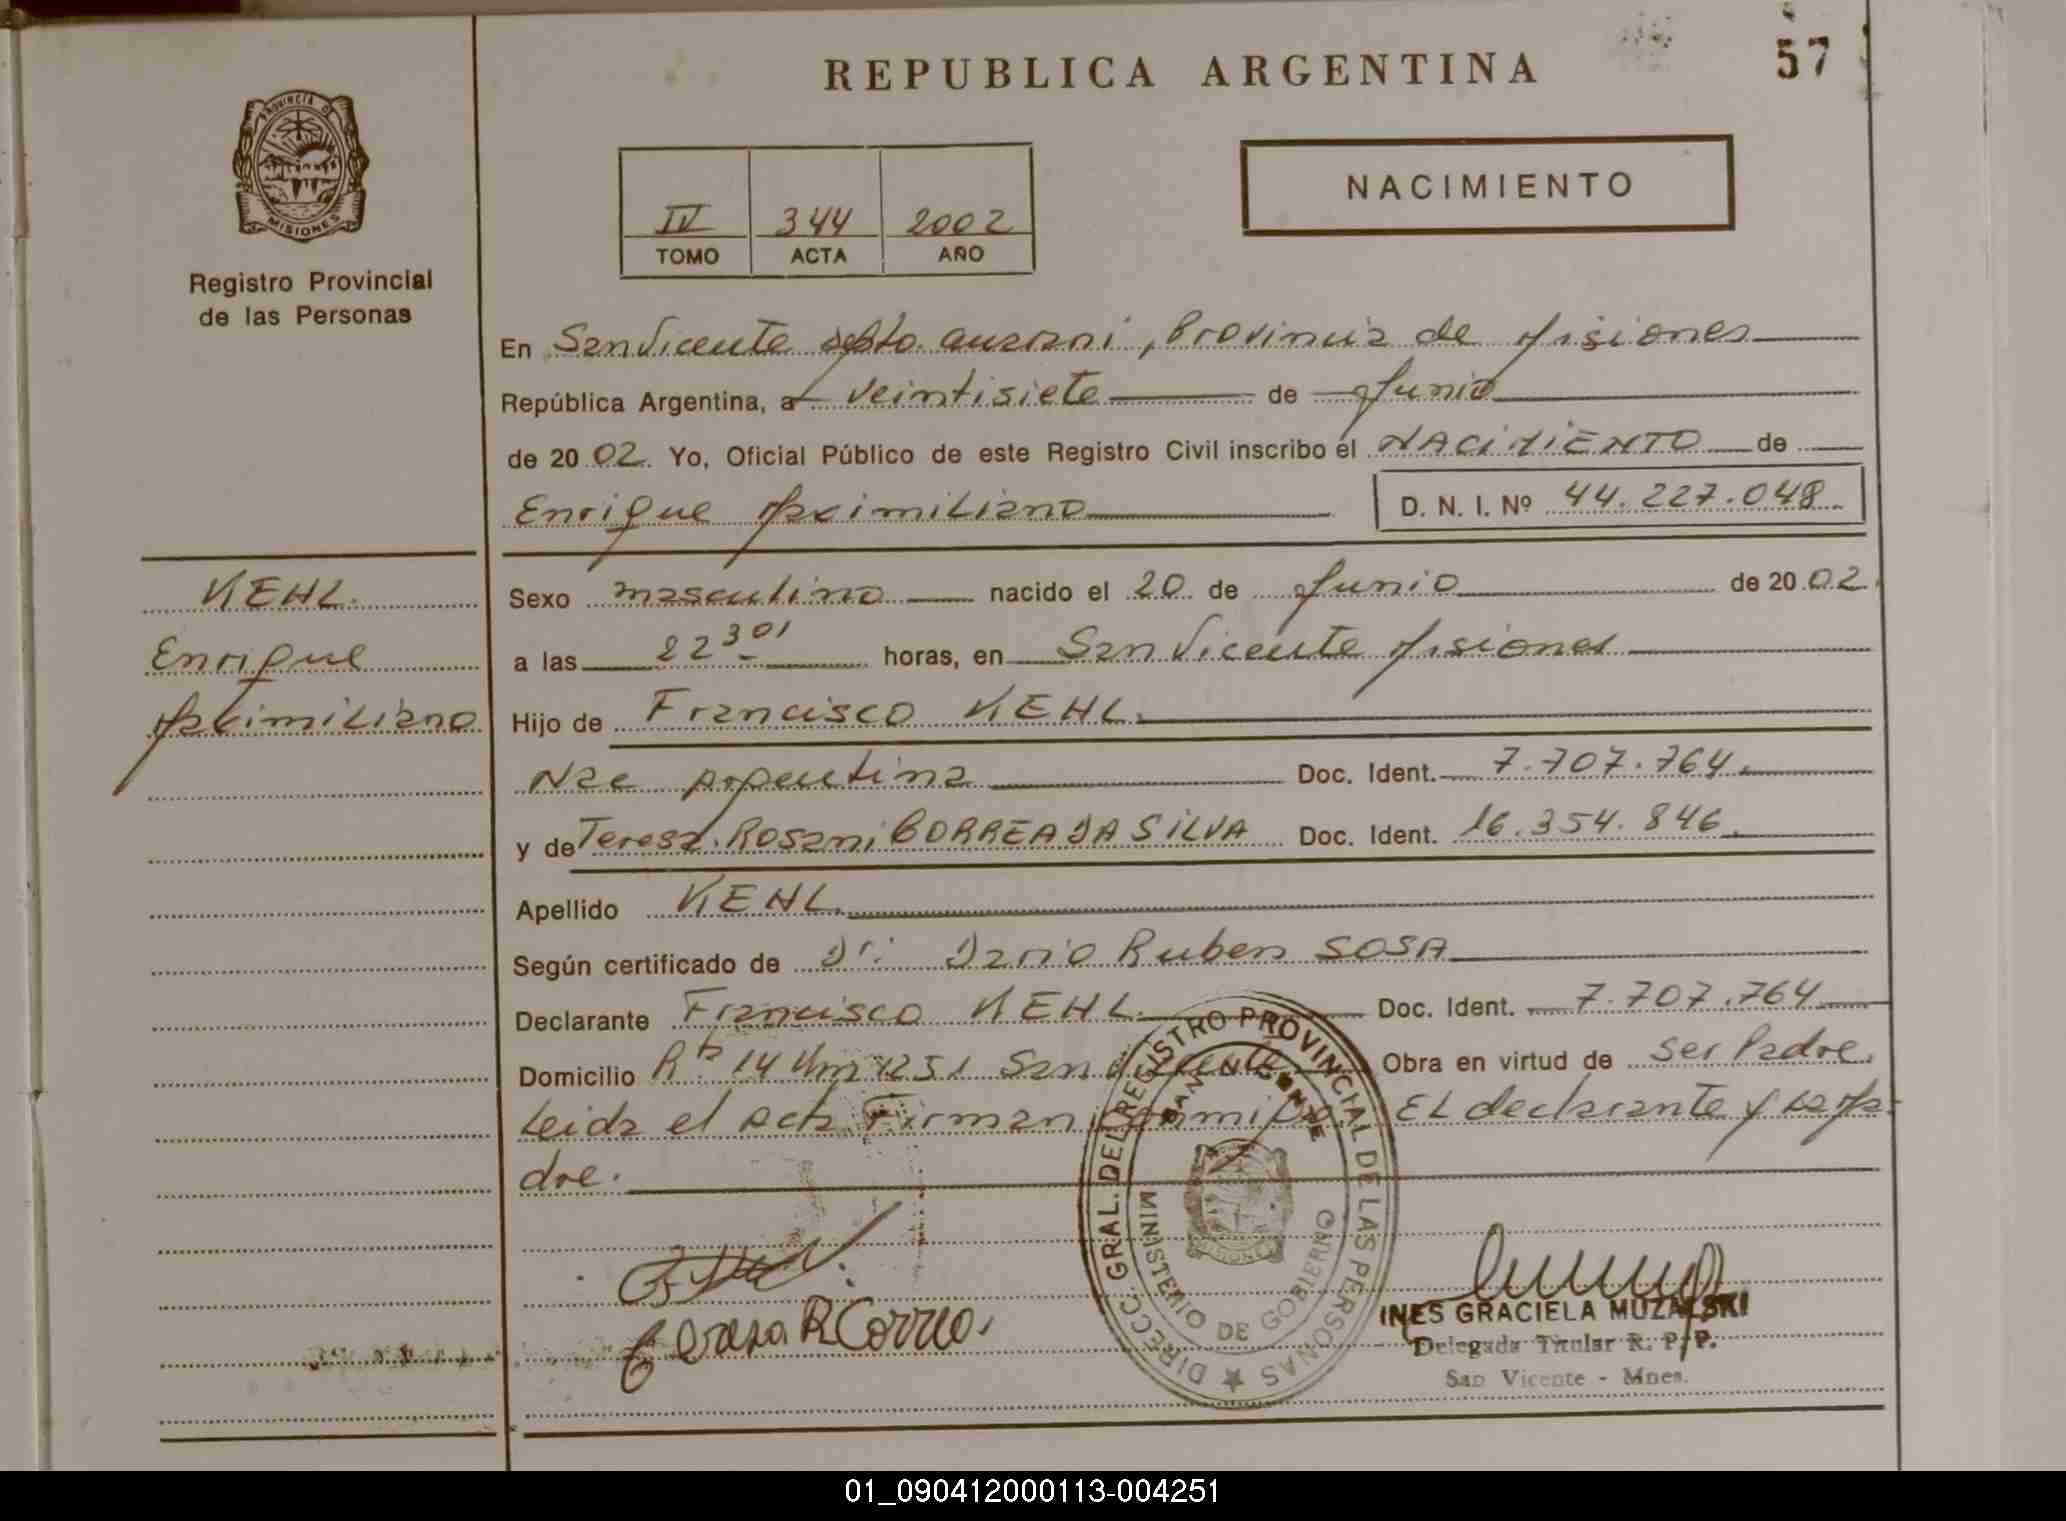 REPUBLICA ARGENTINA
57
PROVINCIA DE
MISIONES
Registro Provincial
de las Personas
IV 344 2002
TOMO ACTA AÑO
NACIMIENTO
En San Vicente depto. Guarani, Provincia de Misiones
República Argentina, a veintisiete de Junio
de 2002. Yo, Oficial Público de este Registro Civil inscribo el NACIMIENTO de
Enrique Maximiliano D. N. I. Nº 44.227.048.
KEHL.
Enrique
Maximiliano
Sexo masculino nacido el 20 de Junio de 2002.
a las 22 horas, en San Vicente Misiones
Hijo de Francisco KEHL.
Nac Argentina Doc. Ident. 7.707.764.
y de Teresa. Rosani CORREA DA SILVA Doc. Ident. 16.354.846.
Apellido KEHL.
Según certificado de Dr: Dario Ruben SOSA
Declarante Francisco KEHL. Doc. Ident. 7.707.764
Domicilio Rta 14 Km 1251 San Vicente Obra en virtud de ser Padre.
Leida el acta Firman conmigo EL declarante y la Ma-
dre.
DIRECC. GRAL. DEL REGISTRO PROVINCIAL DE LAS PERSONAS
SAN VICENTE
MINISTERIO DE GOBIERNO
MISIONES
Teresa R Correa.
INES GRACIELA MUZALSKI
Delegada Titular R. P. P.
San Vicente - Mnes.
01_090412000113-004251